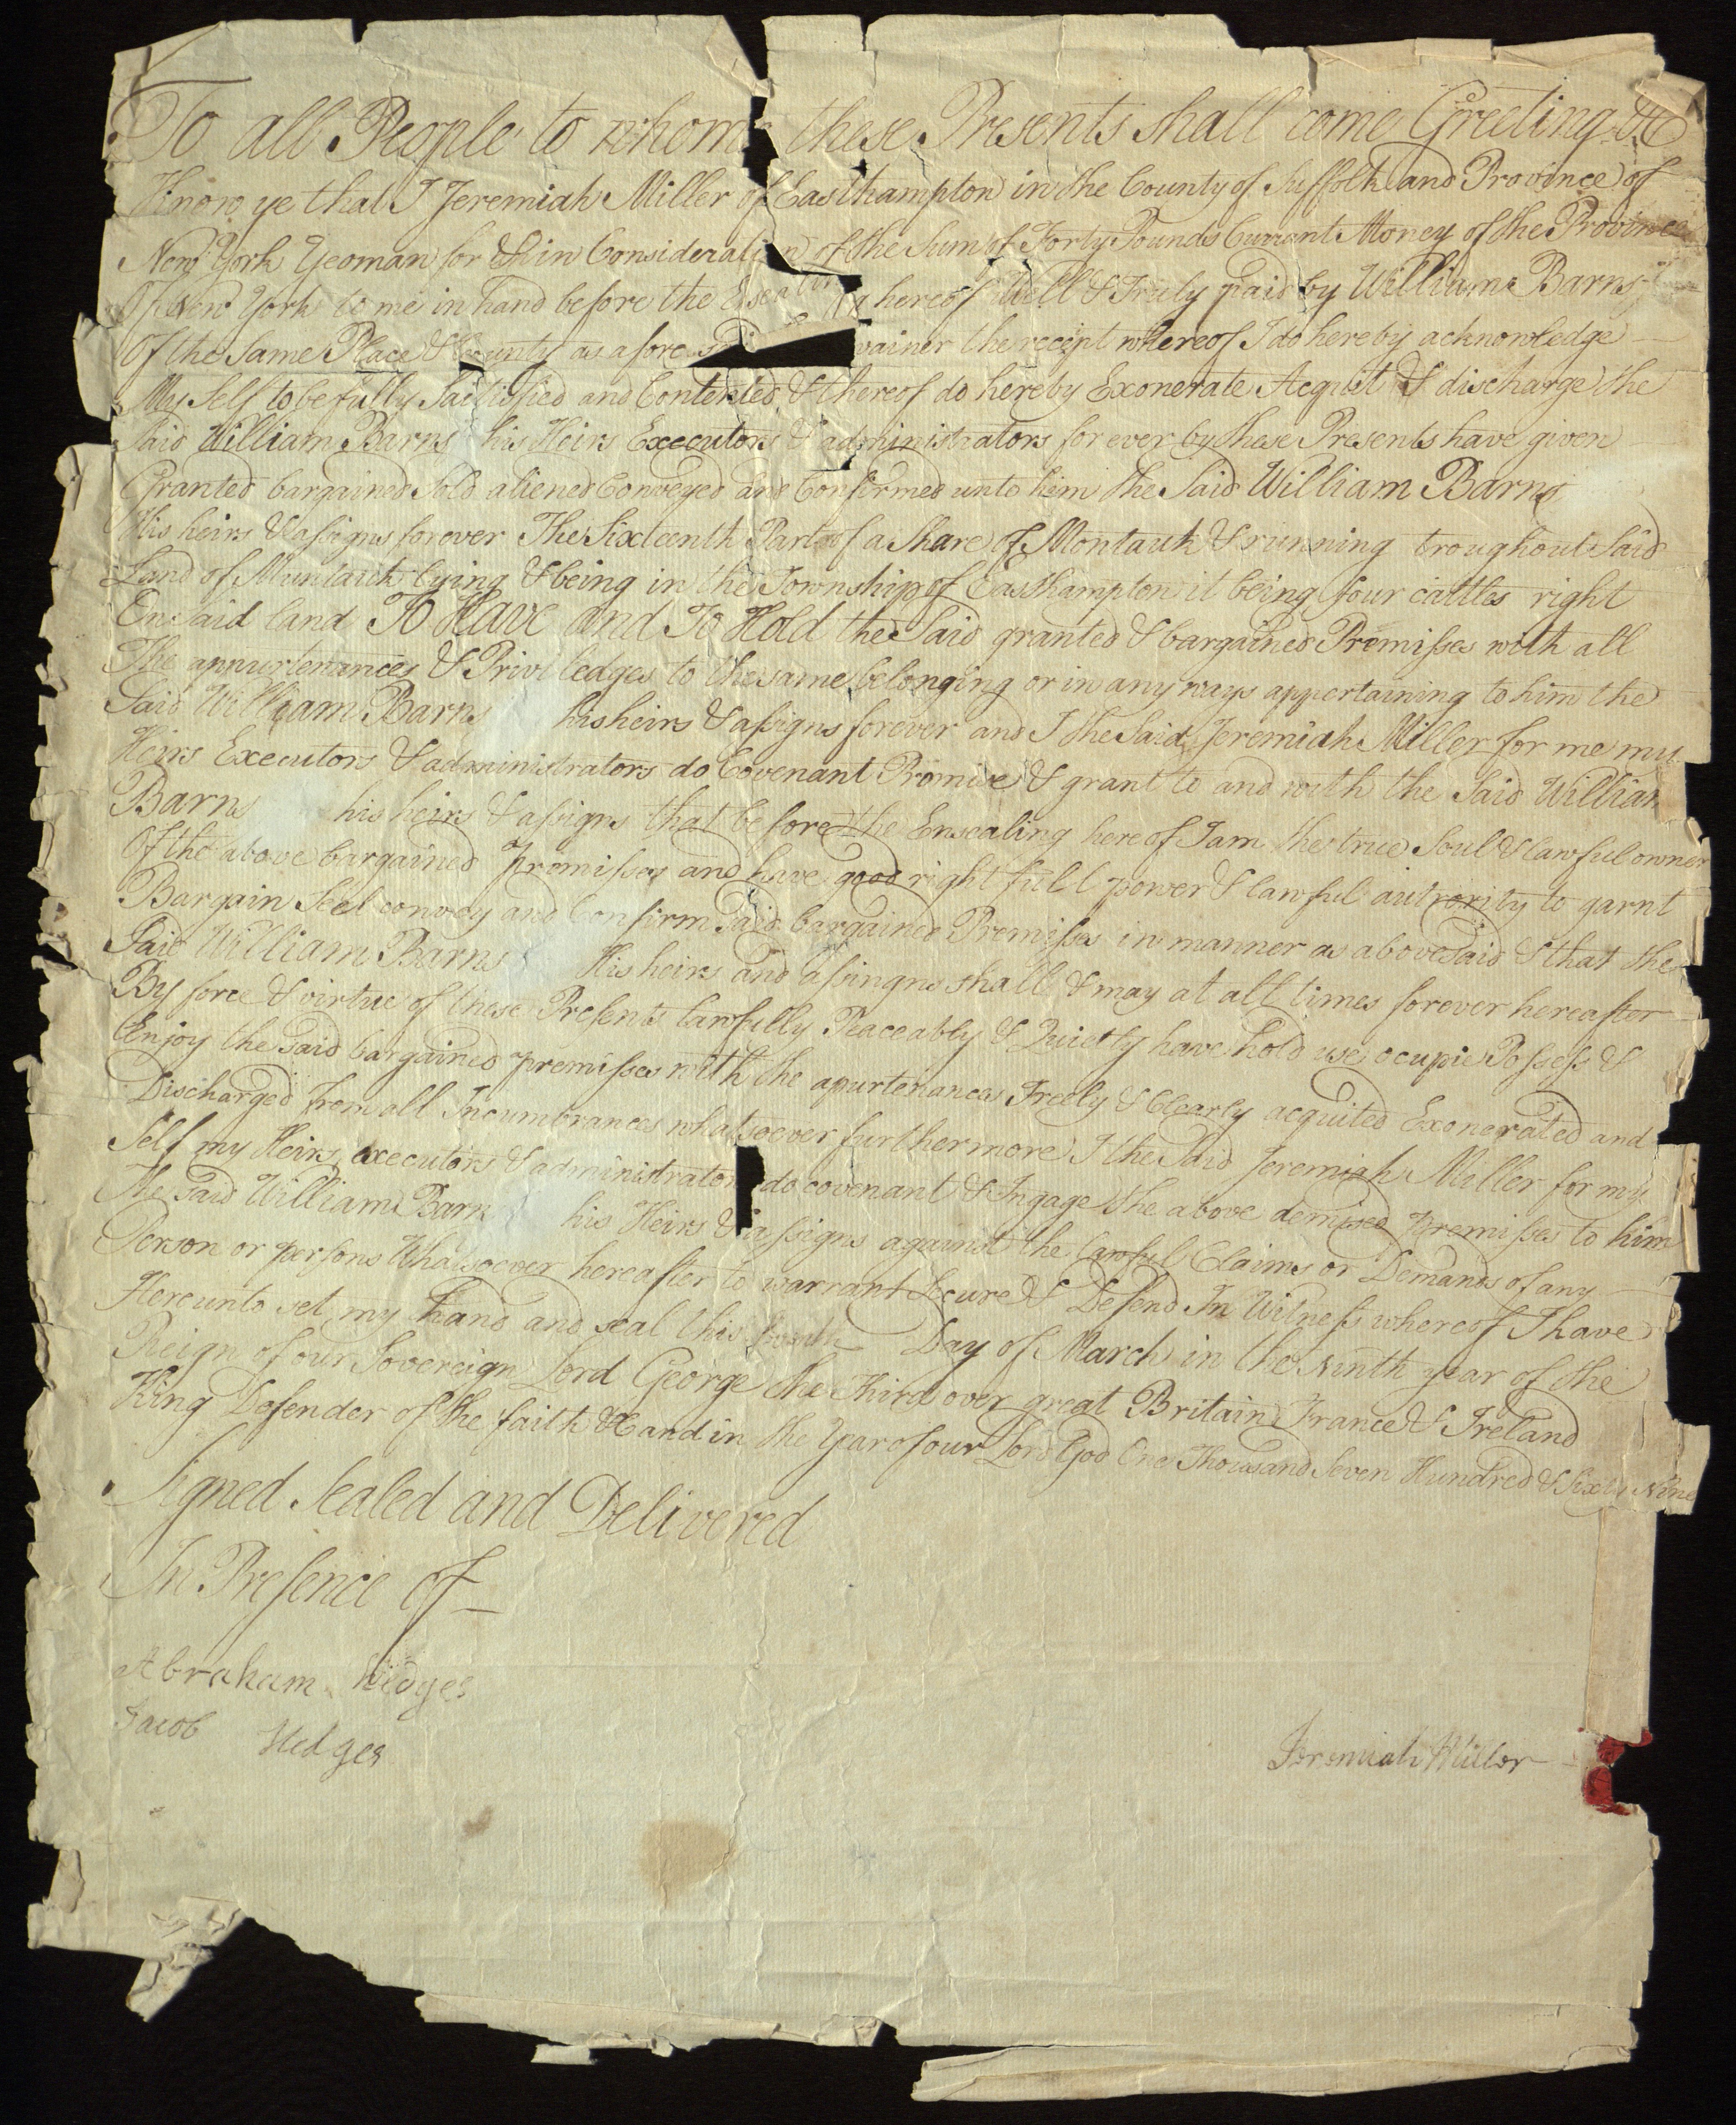 To all People to whom these Presents shall come Greeting &c
Know ye that I Jeremiah Miller of Easthampton in the County of Suffolk and Province of
New York Yeoman for & in Consideration of the Sum of Forty Pounds Currant Money of the Province
Of New York to me in hand before the Ensealing hereof Well & Truly paid by William Barns
Of the Same Place & County as afore the recipt whereof I do hereby acknowledge
My Self to be fully Saitisfied and Contented & thereof do hereby Exonerate Acquit & discharge the
Said William Barns his Heirs Executors & administrators for ever by these Presents have given
Granted bargained Sold aliened Conveyed and Confirmed unto him the Said William Barns
His heirs & assigns forever The Sixteenth Part of a Share of Montauk & running troughout Said
Land of Muntauk lying & being in the Township of Easthampton it being four cattles right
On said land To Have and To Hold the Said granted & bargained Premisses with all
The appurtenances & Priviledges to the same belonging or in any ways appertaining to him the
Said William Barns his heirs & assigns forever and I the Said Jeremiah Miller for me my
Heirs Executors & administrators do Covenant Promise & grant to and with the Said William
Barns his heirs & assigns that before the Ensealing hereof I am the true Soul & lawful owner
Of the above bargained Promisses and have good right full power & lawful autrority to garnt
Bargain Sell convey and Confirm Said bargained Premisses in manner as abovesaid & that the
Said William Barns His heirs and assingns shall & may at all times forever hereafter
By force & virtue of these Presents lawfully Peaceably & Quietly have hold use ocupie Possess &
Enjoy the Said bargained premisses with the apurtenances Freely & Clearly acquited Exonerated and
Discharged from all Incumbrances whatsoever furthermore I the Said Jeremiah Miller for my
Self my Heirs executors & administrators do covenant & Ingage the above demised premisses to him
The Said William Barn his Heirs & assigns against the lawful Claims or Demands of any
Person or persons Whatsoever hereafter to warrant Secure & Defend In Witness whereof I have
Hereunto set my hand and seal this fourth Day of March in the Ninth year of the
Reign of our Sovereign Lord George the Third over great Britain France & Ireland
King Defender of the faith &c and in the Year of our Lord God One Thousand Seven Hundred & Sixty Nine
Signed Sealed and Delivered
In Presence of
Abraham Hedges
Jacob Hedges
Jeremiah Miller